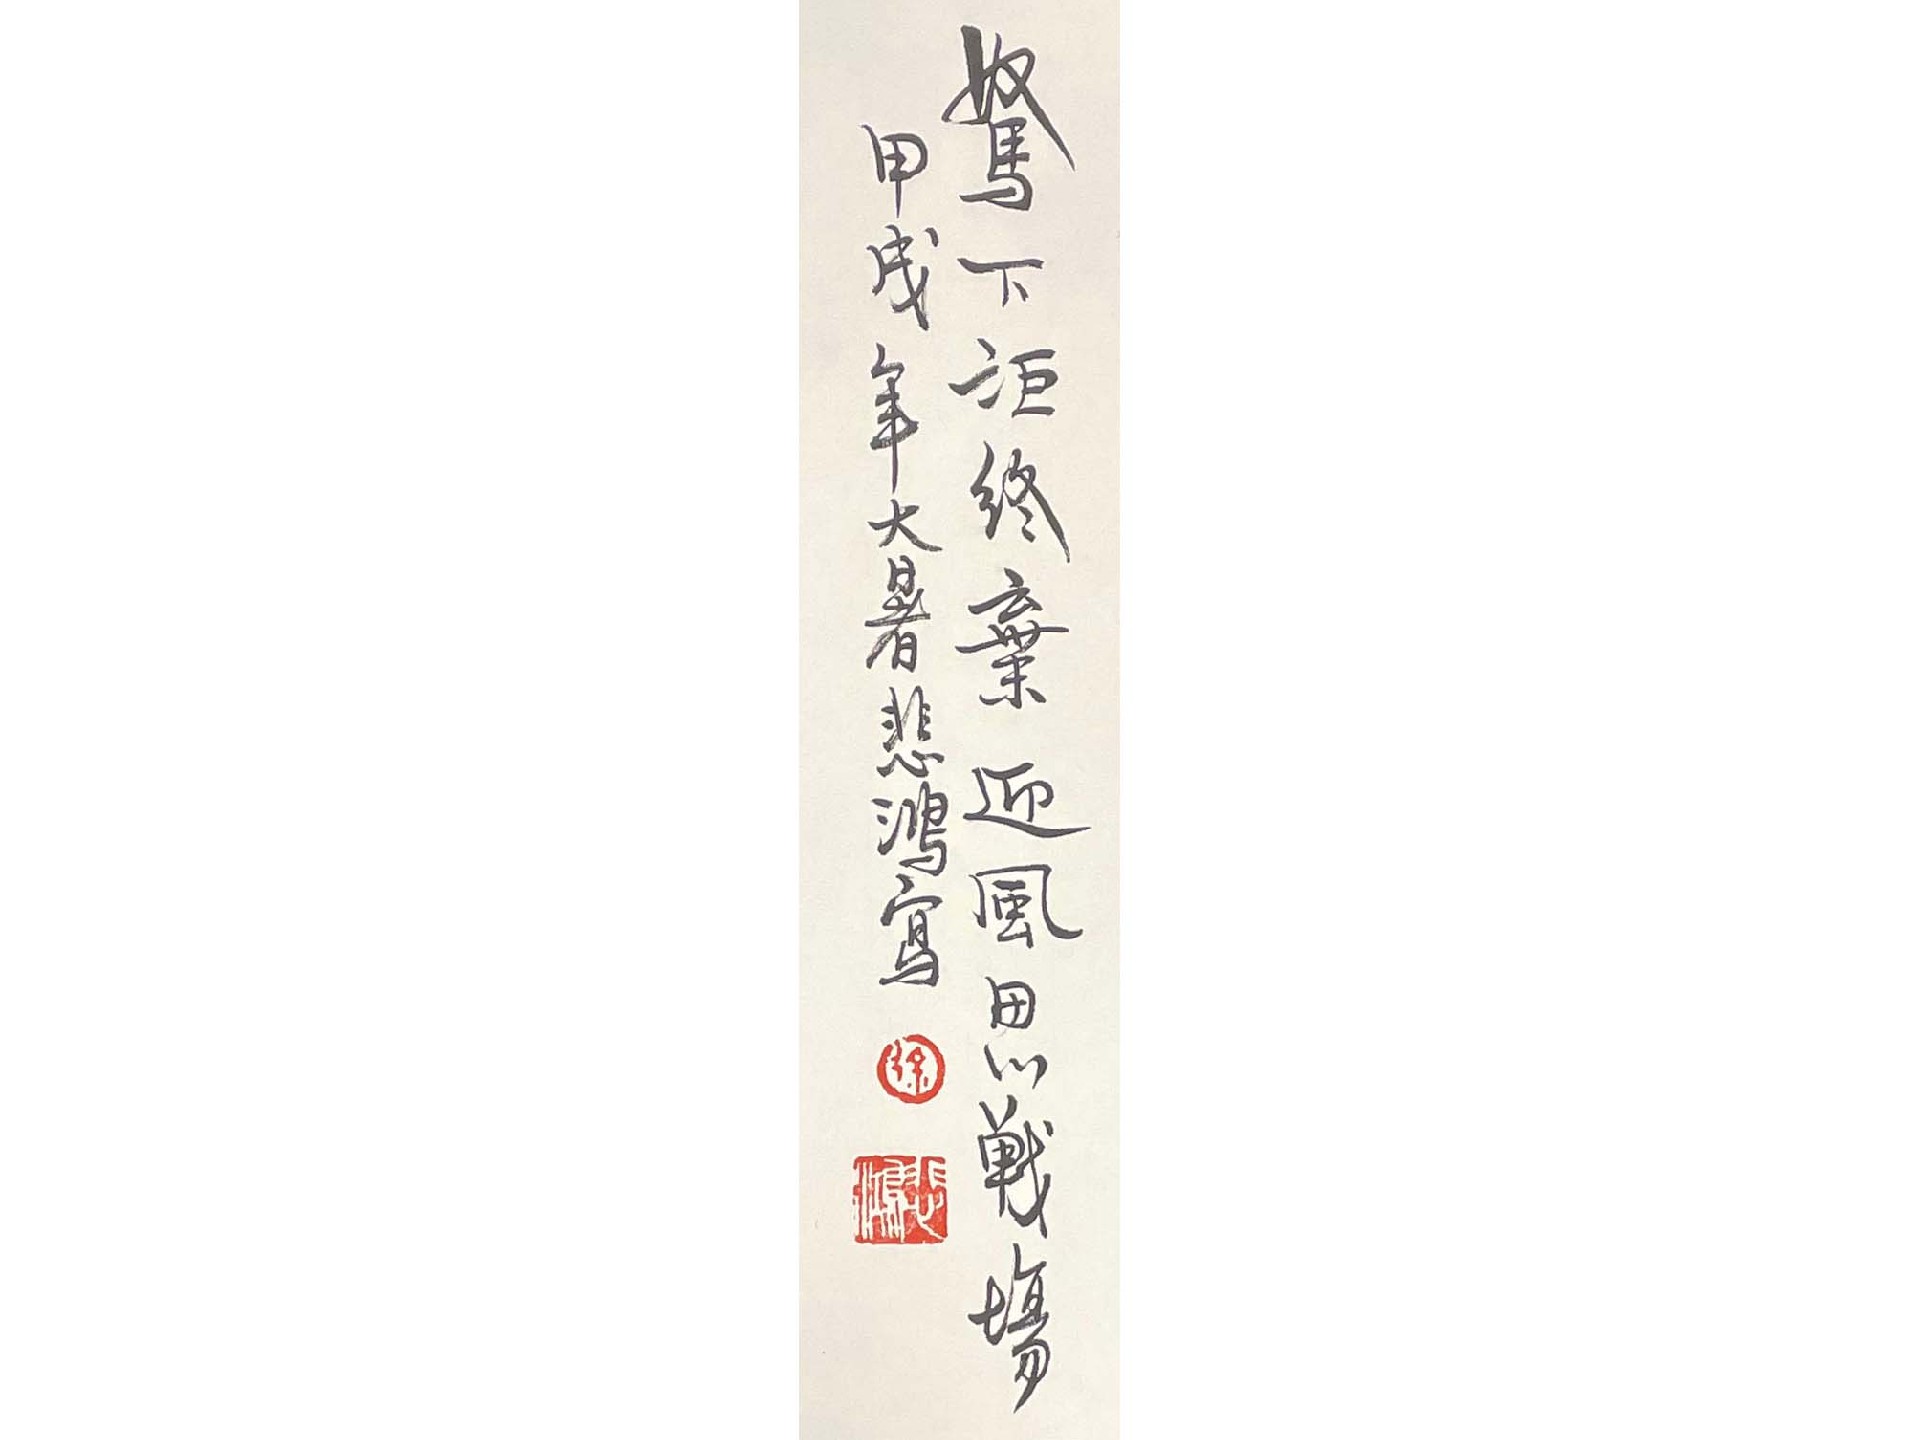 駑下詎終棄迎風思戰場
甲戌年大暑悲鴻寫
徐
悲鴻